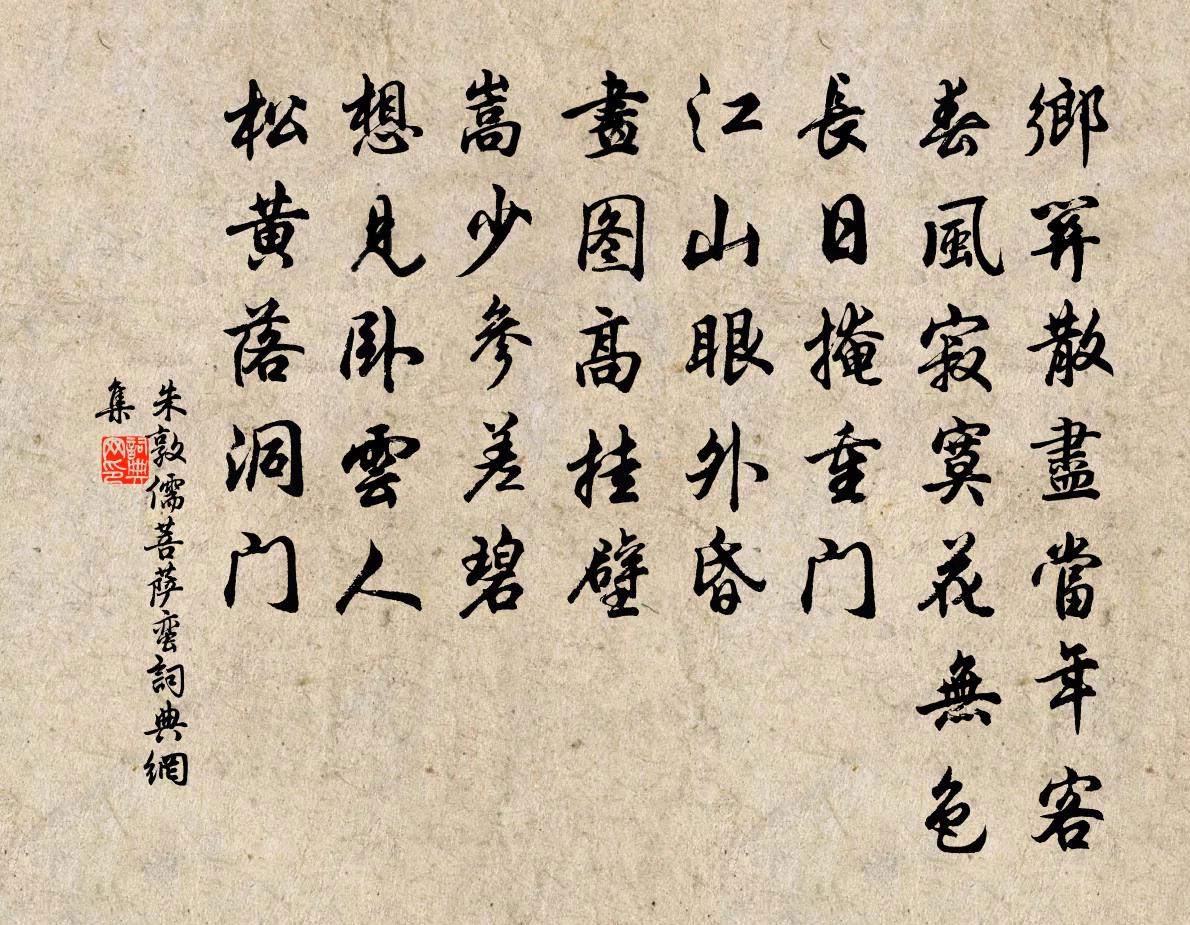 鄉關散盡當年客
春風寂寞花無色
長日掩重门
江山眼外昏
畫图高挂壁
嵩少參差碧
想見臥雲人
松黃落洞门
朱敦儒菩萨蛮詞典網
集
詞典网印